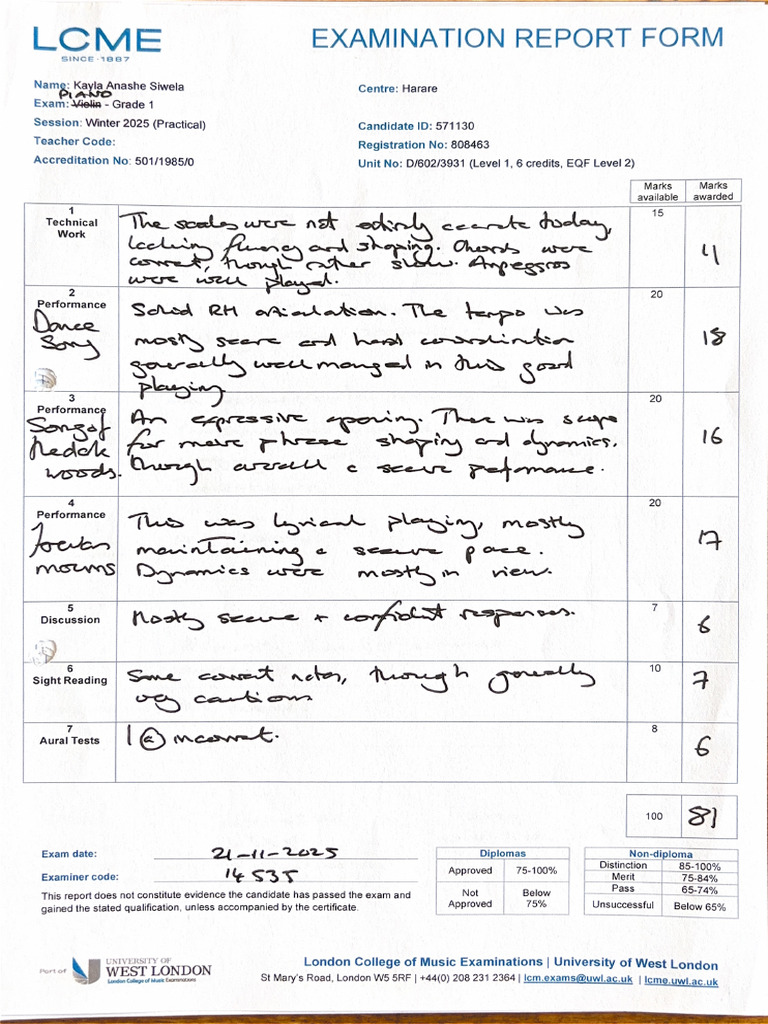 LCME
SINCE·1887
EXAMINATION REPORT FORM
Name: Kayla Anashe Siwela
Centre: Harare
PIANO
Exam: Violin - Grade 1
Session: Winter 2025 (Practical)
Candidate ID: 571130
Teacher Code:
Registration No: 808463
Accreditation No: 501/1985/0
Unit No: D/602/3931 (Level 1, 6 credits, EQF Level 2)
Marks available
Marks awarded
1
Technical Work
The scales were not entirely accurate today,
lacking fluency and shaping. Chords were
correct, though rather slow. Arpeggios
were well played.
15
11
2
Performance
Dance
Song
Solid RH articulation. The tempo was
mostly secure and hand coordination
generally well managed in this good
playing.
20
18
3
Performance
Song of
the
woods.
An expressive opening. There was scope
for more phrase shaping and dynamics,
though overall a secure performance.
20
16
4
Performance
This was lyrical playing, mostly
maintaining a secure pace.
Dynamics were mostly in view.
20
17
5
Discussion
Mostly secure + confident responses.
7
6
6
Sight Reading
Some correct notes, though generally
very cautious
10
7
7
Aural Tests
1 (a) incorrect.
8
6
100
81
Exam date: 21-11-2025
Examiner code: 14535
This report does not constitute evidence the candidate has passed the exam and
gained the stated qualification, unless accompanied by the certificate.
Diplomas
Approved 75-100%
Not Approved Below 75%
Non-diploma
Distinction 85-100%
Merit 75-84%
Pass 65-74%
Unsuccessful Below 65%
Part of
UNIVERSITY OF
WEST LONDON
London College of Music Examinations
London College of Music Examinations | University of West London
St Mary's Road, London W5 5RF | +44(0) 208 231 2364 | lcm.exams@uwl.ac.uk | lcme.uwl.ac.uk